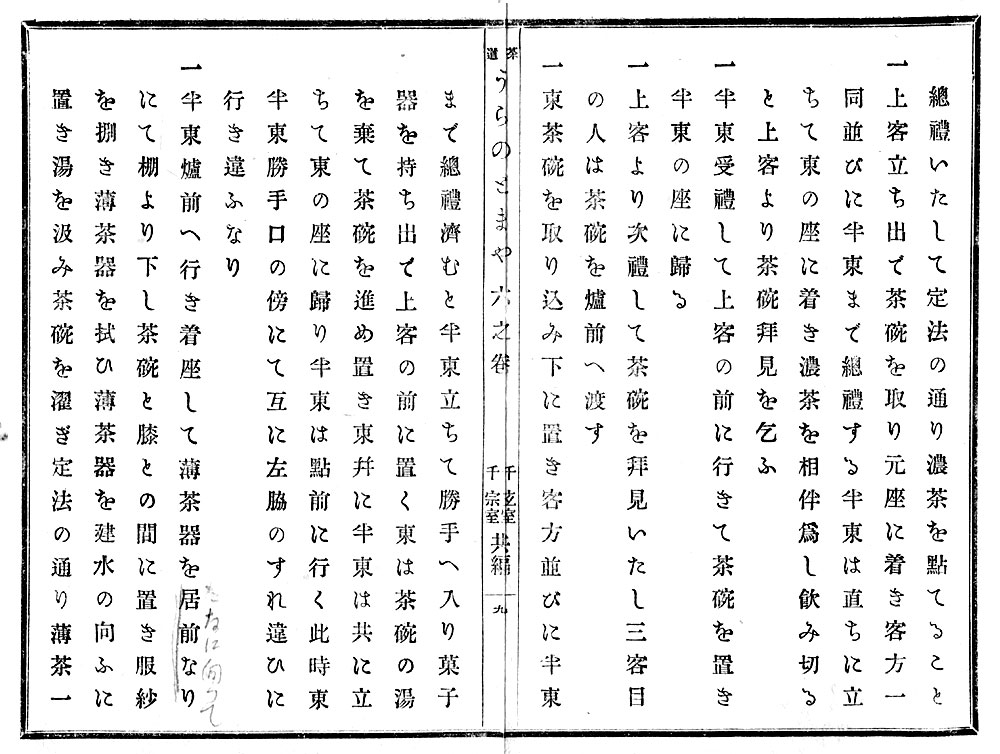 總禮いたして定法の通り濃茶を點てること
一上客立ち出で茶碗を取り元座に着き客方一
同並びに半東まで總禮する半東は直ちに立
ちて東の座に着き濃茶を相伴爲し飮み切る
と上客より茶碗拜見を乞ふ
一半東受禮して上客の前に行きて茶碗を置き
半東の座に歸る
一上客より次禮して茶碗を拜見いたし三客目
の人は茶碗を爐前へ渡す
一東茶碗を取り込み下に置き客方並びに半東
茶道うらのとまや六之卷 千玄室 千宗室 共編 九
まで總禮濟むと半東立ちて勝手へ入り菓子
器を持ち出で上客の前に置く東は茶碗の湯
を棄て茶碗を進め置き東幷に半東は共に立
ちて東の座に歸り半東は點前に行く此時東
半東勝手口の傍にて互に左脇のすれ違ひに
行き違ふなり
一半東爐前へ行き着座して薄茶器を居前なり
たなに向って
にて棚より下し茶碗と膝との間に置き服紗
を捌き薄茶器を拭ひ薄茶器を建水の向ふに
置き湯を汲み茶碗を濯ぎ定法の通り薄茶一